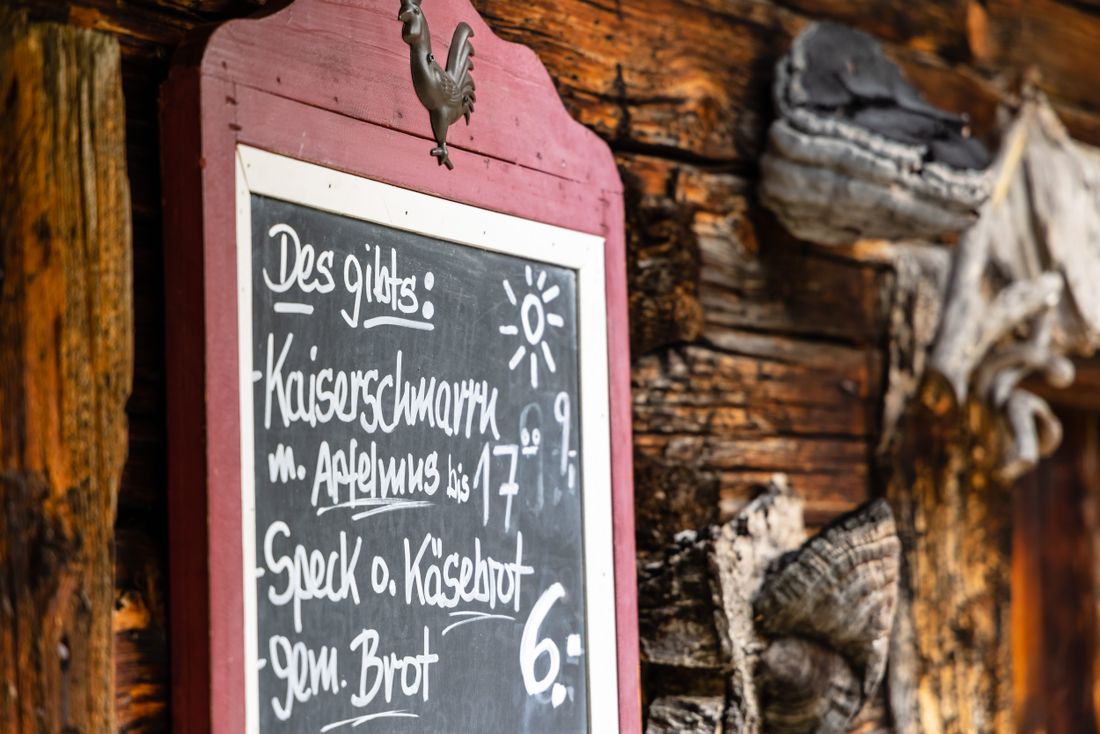 Des gibts:
- Kaiserschmarrn
m. Apfelmus bis 17⁰⁰ 9.-
- Speck o. Käsebrot
- gem. Brot 6.-